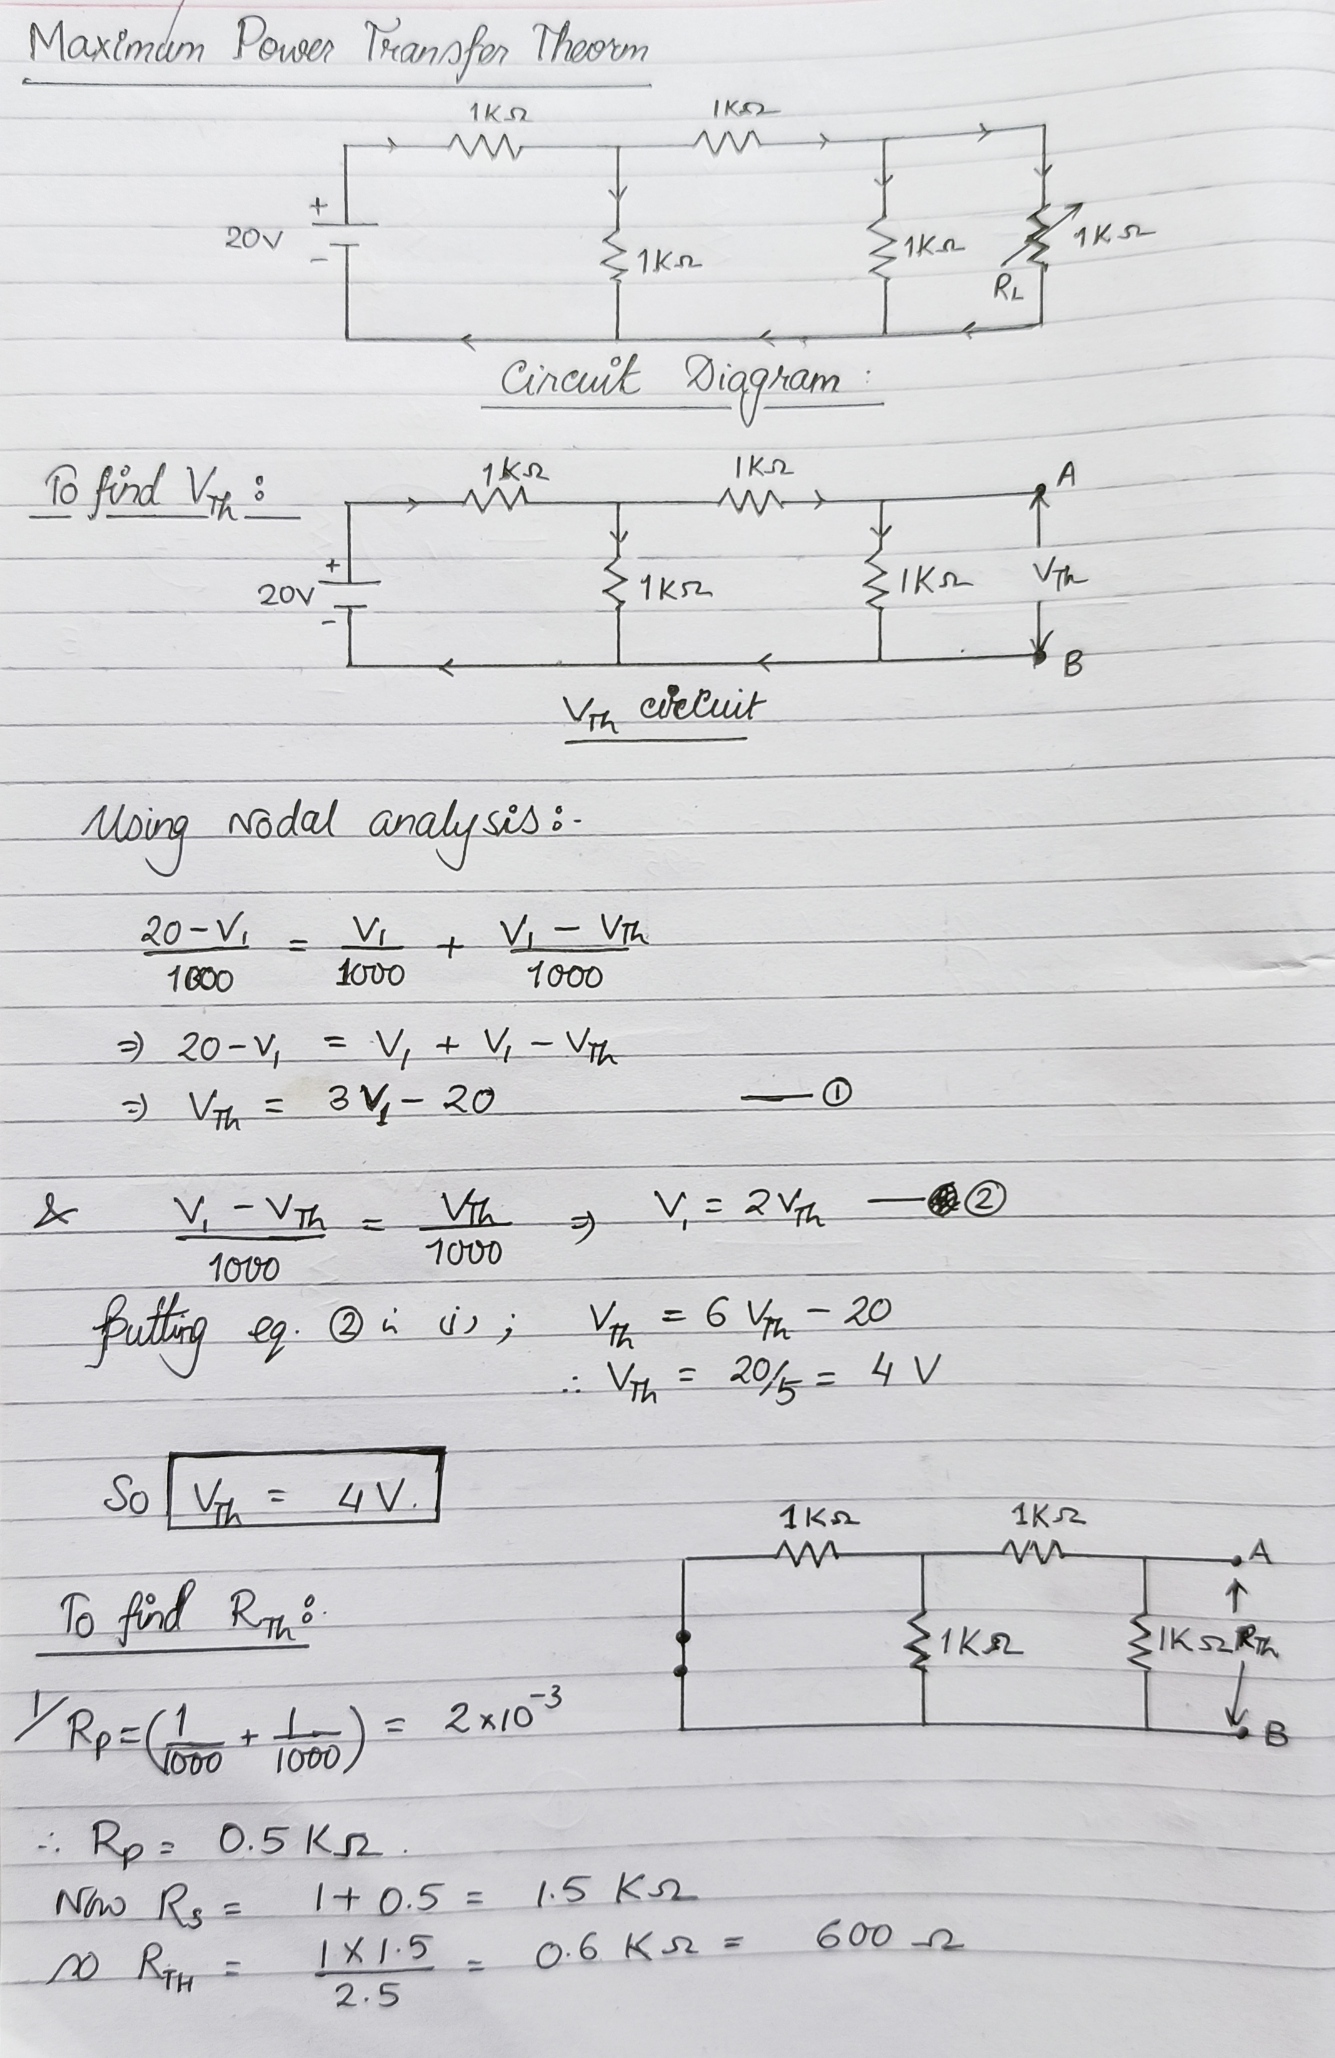 Maximum Power Transfer Theorm
1KΩ 1KΩ
20V + - 1KΩ 1KΩ RL 1KΩ
Circuit Diagram :
To find VTh :
1KΩ 1KΩ A
20V + - 1KΩ 1KΩ VTh
B
VTh circuit
Using Nodal analysis :-
20-V1/1000 = V1/1000 + V1 - VTh/1000
⇒ 20-V1 = V1 + V1 - VTh
⇒ VTh = 3V1 - 20 — ①
& V1 - VTh/1000 = VTh/1000 ⇒ V1 = 2VTh — ②
Putting eq. ② in (i) ; VTh = 6 VTh - 20
∴ VTh = 20/5 = 4 V
So VTh = 4V.
1KΩ 1KΩ A
To find RTh :
1KΩ 1KΩ RTh
B
1/Rp = (1/1000 + 1/1000) = 2×10⁻³
∴ Rp = 0.5 KΩ.
Now Rs = 1 + 0.5 = 1.5 KΩ
so RTH = 1×1.5/2.5 = 0.6 KΩ = 600 Ω